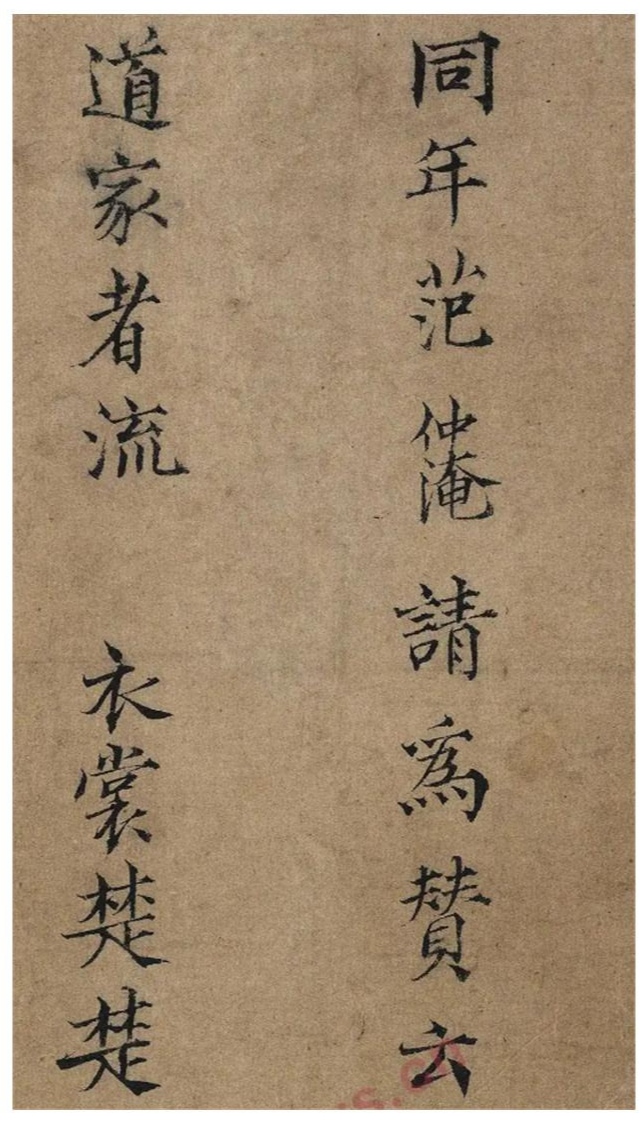 同年范仲淹請為贊云
道家者流 衣裳楚楚